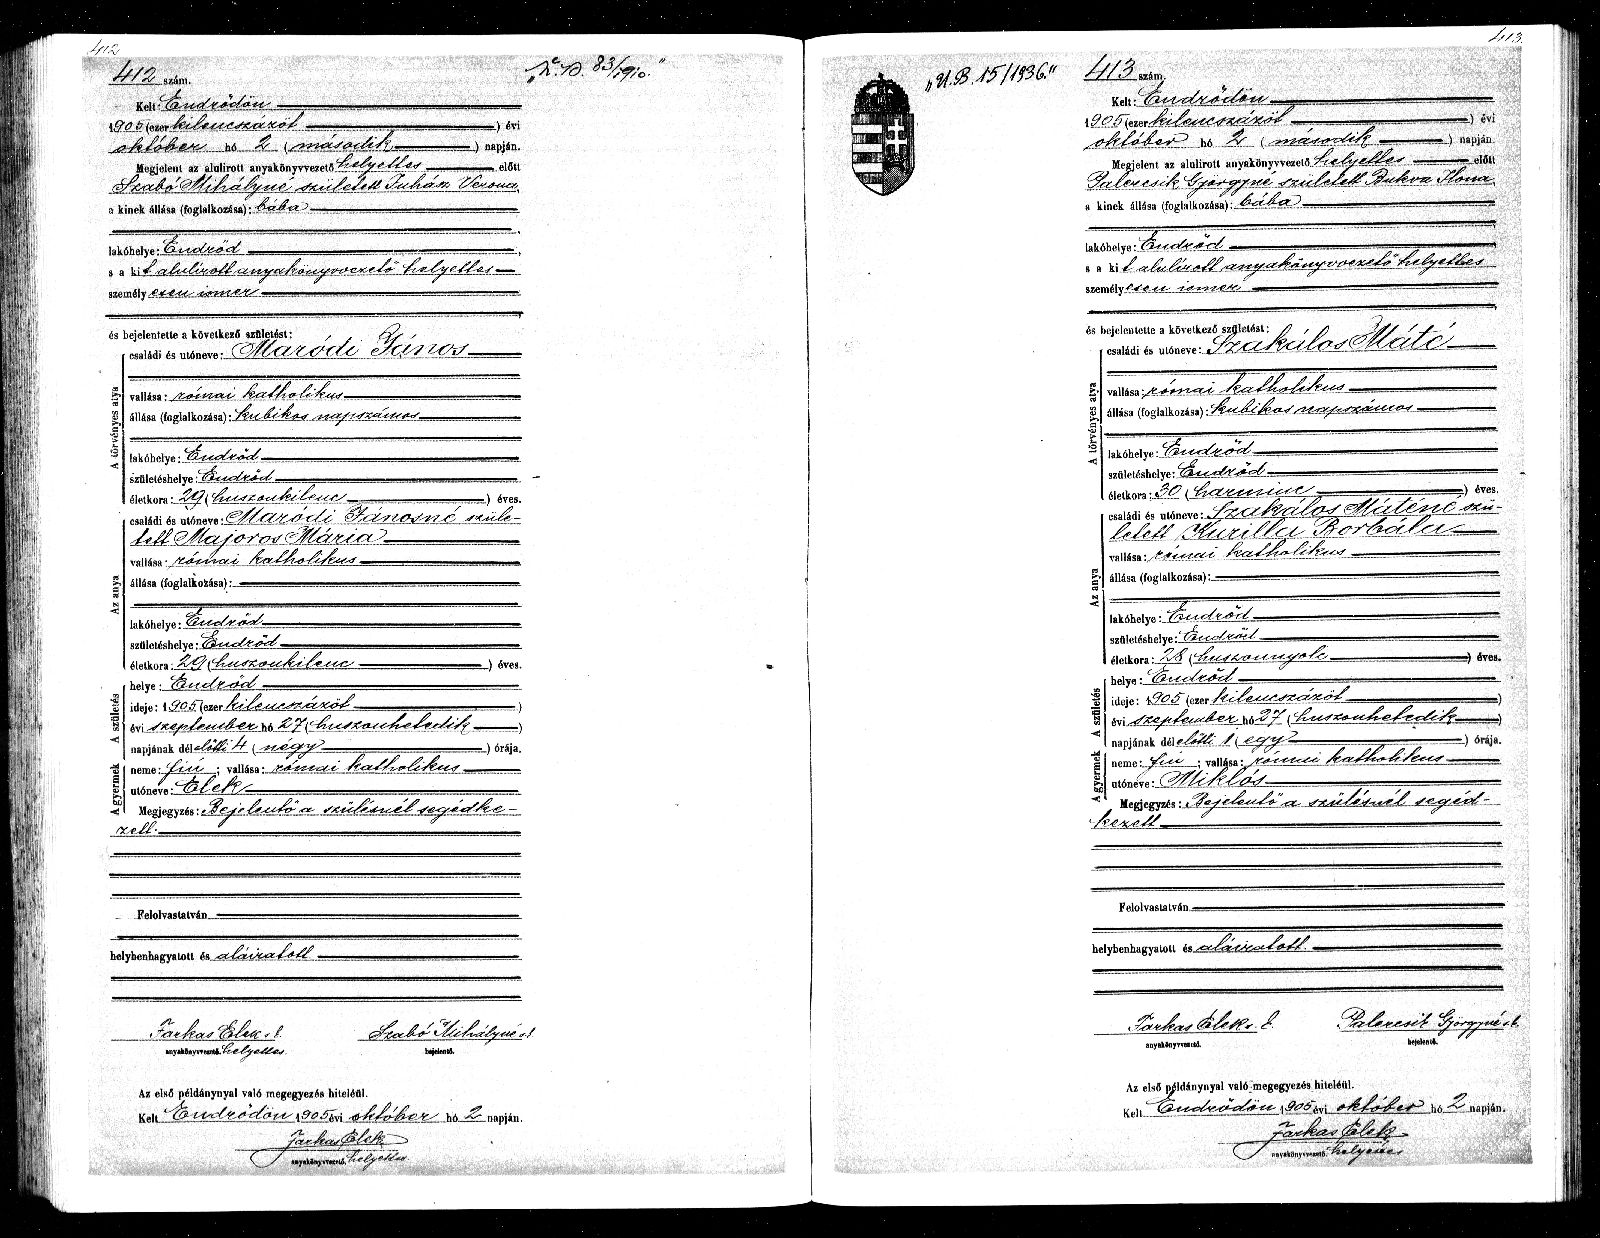 412
412 szám.
83/1910."
Kelt: Endrődön
1905 (ezer kilencszázöt ) évi
október hó 2 (második ) napján.
Megjelent az alulirott anyakönyvvezető helyettes előtt
Szabó Mihályné született Juhász Verona,
a kinek állása (foglalkozása): bába
lakóhelye: Endrőd ,
s a kit alulirott anyakönyvvezető helyettes
személyesen ismer
és bejelentette a következő születést:
A törvényes atya
családi és utóneve: Maródi János
vallása: római katholikus
állása (foglalkozása): kubikos napszámos
lakóhelye: Endrőd
születéshelye: Endrőd
életkora: 29 (huszonkilenc ) éves.
Az anya
családi és utóneve: Maródi Jánosné szüle-
tett Majoros Mária
vallása: római katholikus
állása (foglalkozása):
lakóhelye: Endrőd
születéshelye: Endrőd
életkora: 29 (huszonkilenc ) éves.
A születés
helye: Endrőd
ideje: 1905 (ezer kilencszázöt )
évi szeptember hó 27 (huszonhetedik )
napjának délelőtti 4 (négy ) órája.
A gyermek
neme: fiú ; vallása: római katholikus
utóneve: Elek
Megjegyzés: Bejelentő a szülésnél segédke-
zett.
Felolvastatván
helybenhagyatott és aláiratott
Farkas Elek s.k. Szabó Mihályné s.k.
anyakönyvvezető helyettes bejelentő.
Az első példánynyal való megegyezés hiteléül.
Kelt Endrődön 1905 évi október hó 2 napján.
Farkas Elek
anyakönyvvezető. helyettes
413
413 szám.
"U.B. 15/1936."
Kelt: Endrődön
1905 (ezer kilencszázöt ) évi
október hó 2 (második ) napján.
Megjelent az alulirott anyakönyvvezető helyettes előtt
Palercsik Györgyné született Bukva Ilona,
a kinek állása (foglalkozása): bába
lakóhelye: Endrőd ,
s a kit alulirott anyakönyvvezető helyettes
személyesen ismer
és bejelentette a következő születést:
A törvényes atya
családi és utóneve: Szakálos Máté
vallása: római katholikus
állása (foglalkozása): kubikos napszámos
lakóhelye: Endrőd
születéshelye: Endrőd
életkora: 30 (harminc ) éves.
Az anya
családi és utóneve: Szakálos Máténé szü-
letett Kurilla Borbála
vallása: római katholikus
állása (foglalkozása):
lakóhelye: Endrőd
születéshelye: Endrőd
életkora: 28 (huszonnyolc ) éves.
A születés
helye: Endrőd
ideje: 1905 (ezer kilencszázöt )
évi szeptember hó 27 (huszonhetedik )
napjának délelőtti 1 (egy ) órája.
A gyermek
neme: fiu ; vallása: római katholikus
utóneve: Miklós
Megjegyzés: Bejelentő a szülésnél segéd-
kezett
Felolvastatván
helybenhagyatott és aláiratott.
Farkas Elek s. k. Palercsik Györgyné s.k.
anyakönyvvezető. bejelentő.
Az első példánynyal való megegyezés hiteléül.
Kelt Endrődön 1905 évi október hó 2 napján.
Farkas Elek
anyakönyvvezető. helyettes